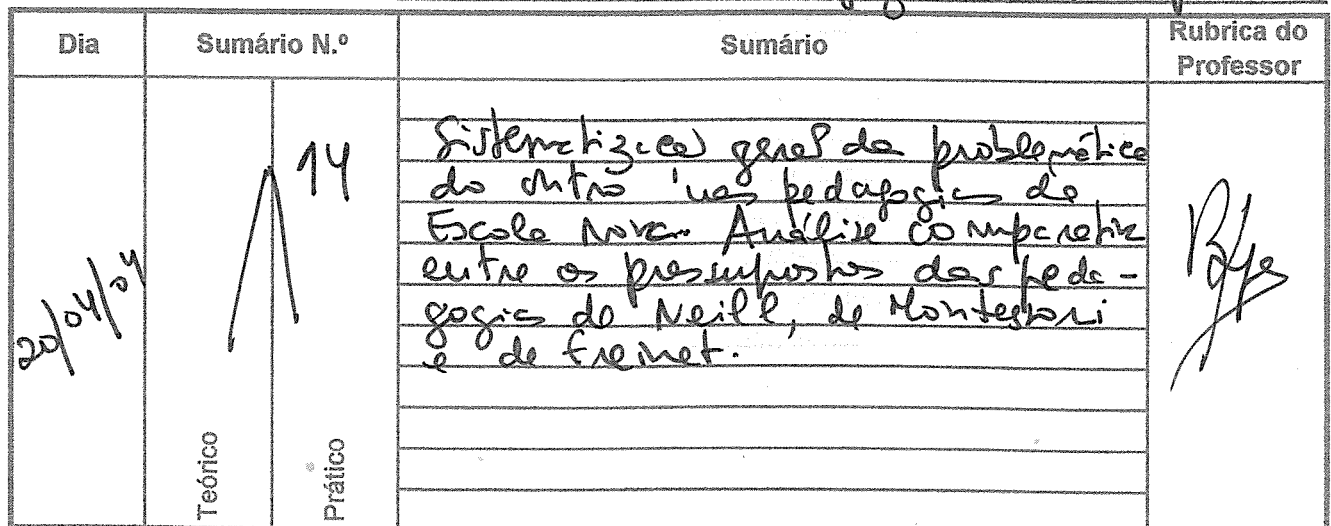 Dia
Sumário N.º
Sumário
Rubrica do
Professor
20/04/04
14
Sistematização geral da problemática
do outro nas pedagogias da
Escola Nova. Análise comparativa
entre os pressupostos das peda-
gogias de Neill, de Montessori
e de Freinet.
Teórico
Prático